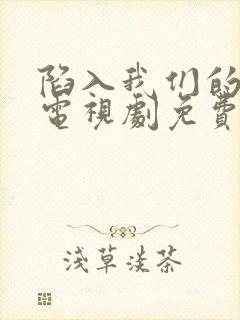 陷入我们的
電視劇免費
淺草淡茶